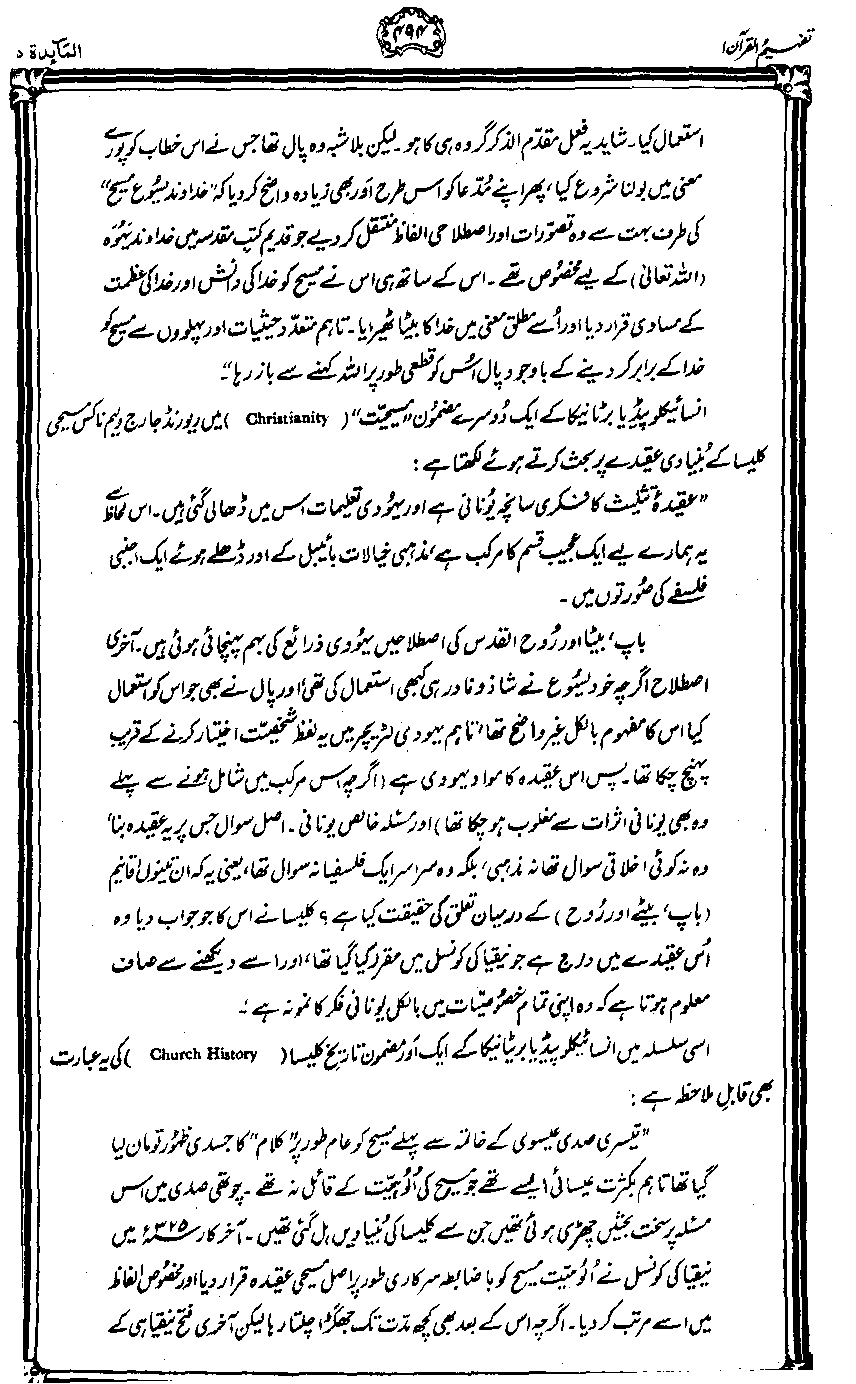 تفہیم القرآن ۱
۴۹۴
المآئدۃ ۵
استعمال کیا۔ شاید یہ فعل مقدّم الذکر گروہ ہی کا ہو۔ لیکن بلاشبہ وہ پال تھا جس نے اس خطاب کو پورے
معنی میں بولنا شروع کیا، پھر اپنے مُدّعا کو اس طرح اَور بھی زیادہ واضح کر دیا کہ ”خداوند یسُوع مسیح“
کی طرف بہت سے وہ تصوّرات اور اصطلاحی الفاظ منتقل کر دیے جو قدیم کتبِ مقدسہ میں خداوند یَہْوَہ
(اللہ تعالیٰ) کے لیے مخصُوص تھے۔ اس کے ساتھ ہی اس نے مسیح کو خدا کی دانش اور خدا کی عظمت
کے مساوی قرار دیا اور اُسے مطلق معنی میں خدا کا بیٹا ٹھیرایا۔ تاہم متعدّد حیثیات اور پہلووں سے مسیح کو
خدا کے برابر کر دینے کے باوجود پال اُس کو قطعی طور پر اللہ کہنے سے باز رہا“۔
انسائیکلوپیڈیا برٹانیکا کے ایک دُوسرے مضمُون ”مسیحیّت“ (Christianity) میں ریورنڈ جارج ولیم ناکس مسیحی
کلیسا کے بُنیادی عقیدے پر بحث کرتے ہوئے لکھتا ہے:
”عقیدۂ تثلیث کا فکری سانچہ یُونانی ہے اور یہُودی تعلیمات اس میں ڈھالی گئی ہیں۔ اس لحاظ سے
یہ ہمارے لیے ایک عجیب قسم کا مرکب ہے، مذہبی خیالات بائیبل کے اور ڈھلے ہوئے ایک اجنبی
فلسفے کی صُورتوں میں۔
باپ، بیٹا اور رُوح القدس کی اصطلاحیں یہُودی ذرائع کی بہم پہنچائی ہوئی ہیں۔ آخری
اصطلاح اگرچہ خود یسُوع نے شاذ و نادر ہی کبھی استعمال کی تھی، اور پال نے بھی جو اس کو استعمال
کیا اس کا مفہوم بالکل غیر واضح تھا، تاہم یہودی لٹریچر میں یہ لفظ شخصیّت اختیار کرنے کے قریب
پہنچ چکا تھا۔ پس اس عقیدہ کا مواد یہودی ہے (اگرچہ اس مرکب میں شامل ہونے سے پہلے
وہ بھی یونانی اثرات سے مغلوب ہو چکا تھا) اور مسئلہ خالص یونانی۔ اصل سوال جس پر یہ عقیدہ بنا،
وہ نہ کوئی اخلاقی سوال تھا نہ مذہبی، بلکہ وہ سراسر ایک فلسفیانہ سوال تھا، یعنی یہ کہ ان تینوں اقانیم
(باپ، بیٹے اور رُوح) کے درمیان تعلق کی حقیقت کیا ہے؟ کلیسا نے اس کا جو جواب دیا وہ
اُس عقیدے میں درج ہے جو نیقیا کی کونسل میں مقرر کیا گیا تھا، اور اسے دیکھنے سے صاف
معلوم ہوتا ہے کہ وہ اپنی تمام خصُوصیّات میں بالکل یُونانی فکر کا نمونہ ہے“۔
اسی سلسلہ میں انسائیکلوپیڈیا برٹانیکا کے ایک اَور مضمون تاریخِ کلیسا (Church History) کی یہ عبارت
بھی قابلِ ملاحظہ ہے:
”تیسری صدی عیسوی کے خاتمہ سے پہلے مسیح کو عام طور پر ”کلام“ کا جسدی ظہُور تو مان لیا
گیا تھا تاہم بکثرت عیسائی ایسے تھے جو مسیح کی اُلُوہیّت کے قائل نہ تھے۔ چوتھی صدی میں اس
مسئلہ پر سخت بحثیں چھڑی ہوئی تھیں جن سے کلیسا کی بُنیادیں ہل گئی تھیں۔ آخر کار ۳۲۵ء میں
نیقیا کی کونسل نے اُلُوہیّتِ مسیح کو باضابطہ سرکاری طور پر اصل مسیحی عقیدہ قرار دیا اور مخصُوص الفاظ
میں اسے مرتب کر دیا۔ اگرچہ اس کے بعد بھی کچھ مدّت تک جھگڑا چلتا رہا لیکن آخری فتح نیقیا ہی کے